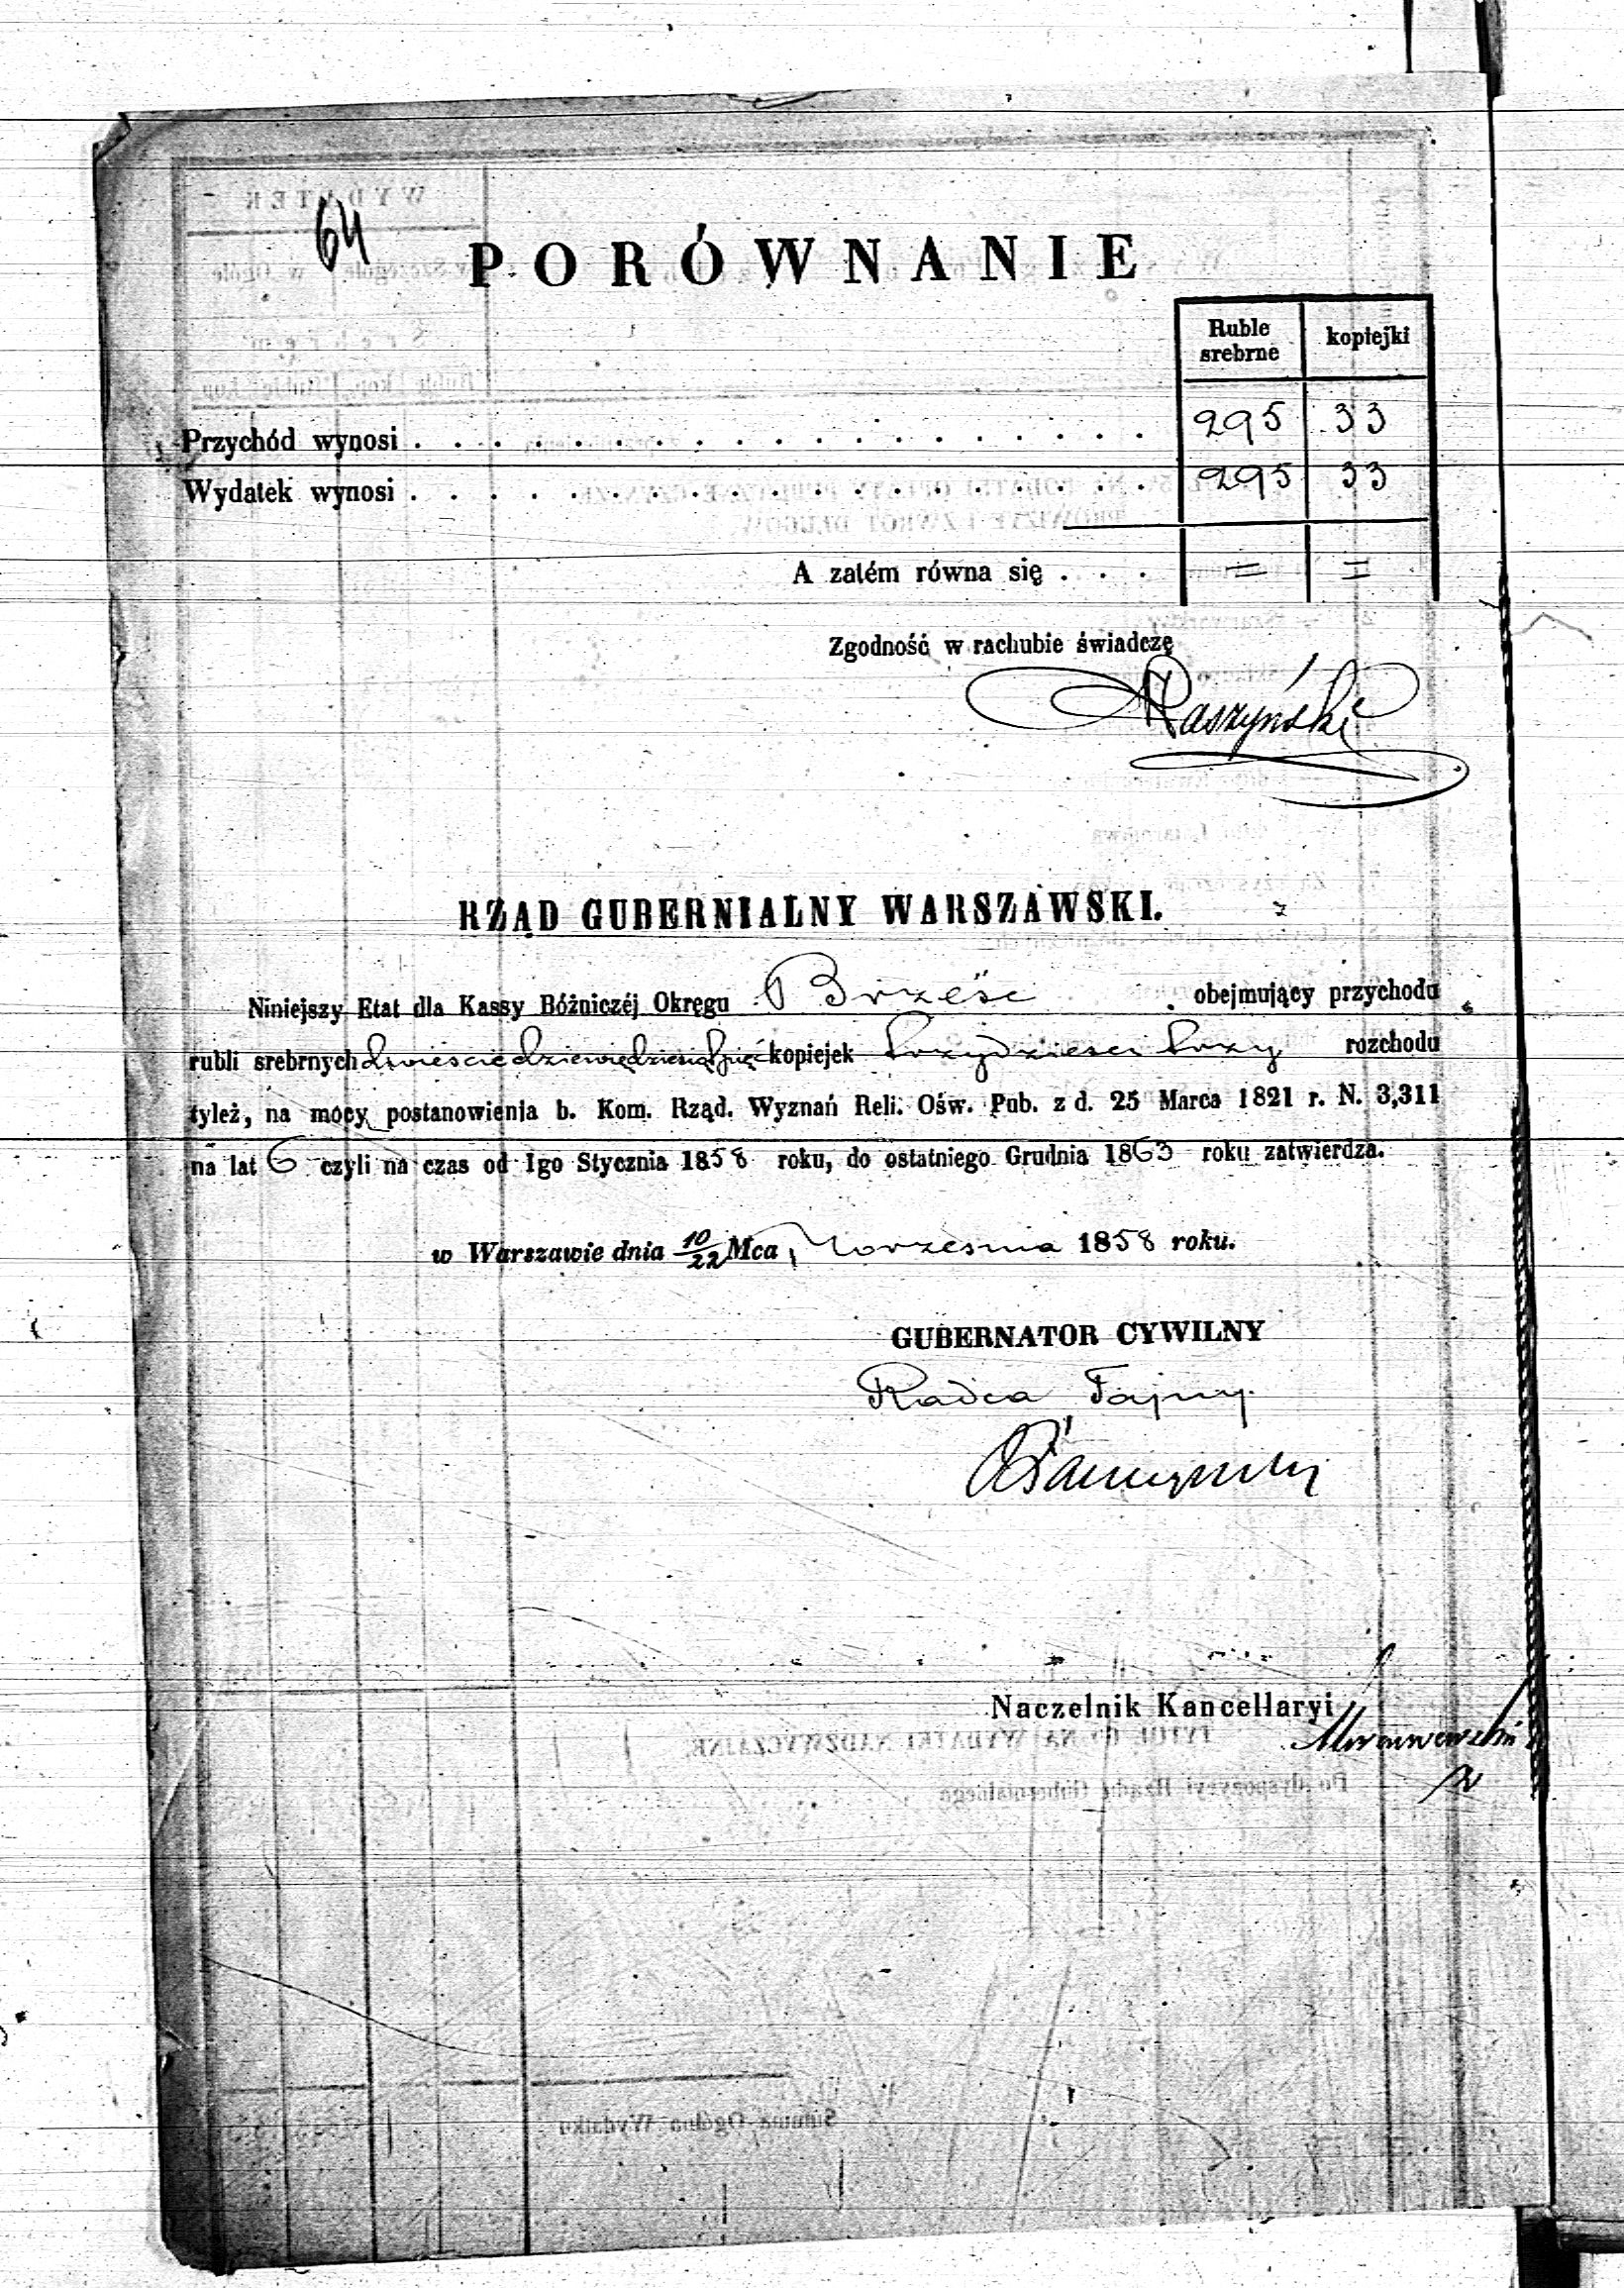 64
PORÓWNANIE
Ruble srebrne kopiejki
Przychód wynosi . . . . . . . . . . . . . . . . . . . 295 33
Wydatek wynosi . . . . . . . . . . . . . . . . . . . 295 33
A zatém równa się . . . = =
Zgodność w rachubie świadczę
Raszyński
RZĄD GUBERNIALNY WARSZAWSKI.
Niniejszy Etat dla Kassy Bóżniczéj Okręgu Brześć obejmujący przychodu
rubli srebrnych dwieście dziewiędziesiąt pięć kopiejek trzydzieści trzy rozchodu
tyleż, na mocy postanowienia b. Kom. Rząd. Wyznań Reli. Ośw. Pub. z d. 25 Marca 1821 r. N. 3,311
na lat 6 czyli na czas od Igo Stycznia 1858 roku, do ostatniego Grudnia 1863 roku zatwierdza.
w Warszawie dnia 10/22 Mca Września 1858 roku.
GUBERNATOR CYWILNY
Radca Tajny.
Naczelnik Kancellaryi